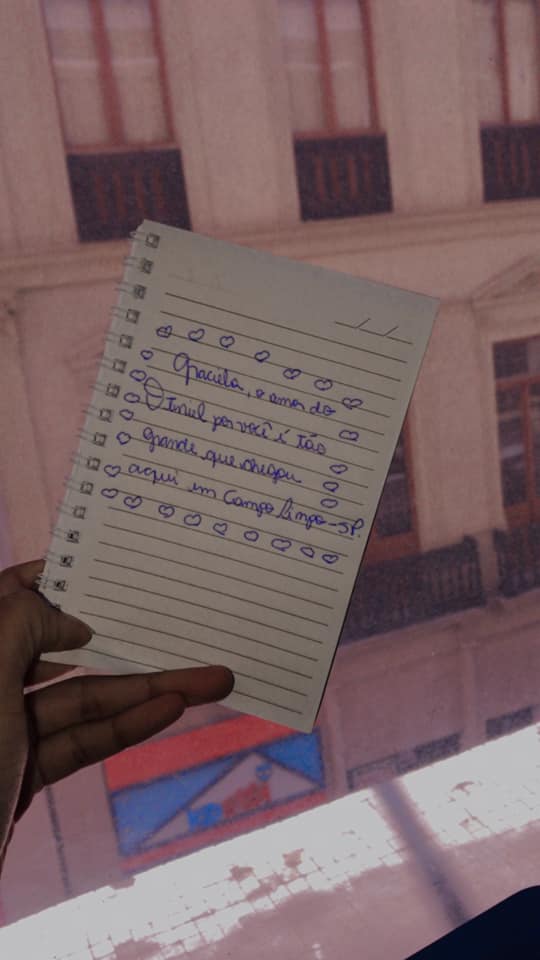 Graciela, o amor do
Otniel por você é tão
grande que chegou
aqui em Campo Limpo-SP.